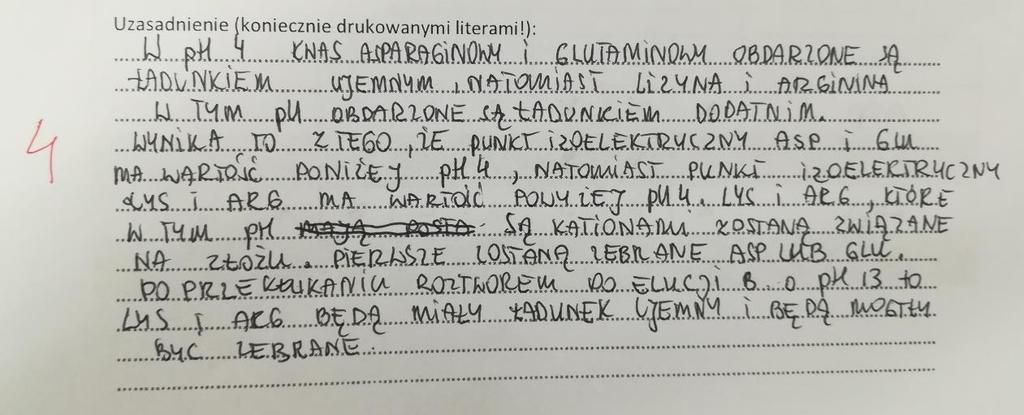 Uzasadnienie (koniecznie drukowanymi literami!):
W pH 4 KWAS ASPARAGINOWY I GLUTAMINOWY OBDARZONE SĄ
ŁADUNKIEM UJEMNYM, NATOMIAST LIZYNA I ARGININA
W TYM pH OBDARZONE SĄ ŁADUNKIEM DODATNIM.
WYNIKA TO Z TEGO, ŻE PUNKT IZOELEKTRYCZNY ASP I GLU
4
MA WARTOŚĆ PONIŻEJ pH 4, NATOMIAST PUNKT IZOELEKTRYCZNY
LYS I ARG MA WARTOŚĆ POWYŻEJ pH 4. LYS I ARG, KTÓRE
W TYM pH MAJĄ POSTA SĄ KATIONAMI ZOSTANĄ ZWIĄZANE
NA ZŁOŻU. PIERWSZE ZOSTANĄ ZEBRANE ASP LUB GLU.
PO PRZEPŁUKANIU ROZTWOREM DO ELUCJI B O pH 13 to
LYS I ARG BĘDĄ MIAŁY ŁADUNEK UJEMNY I BĘDĄ MOGŁY
BYĆ ZEBRANE.